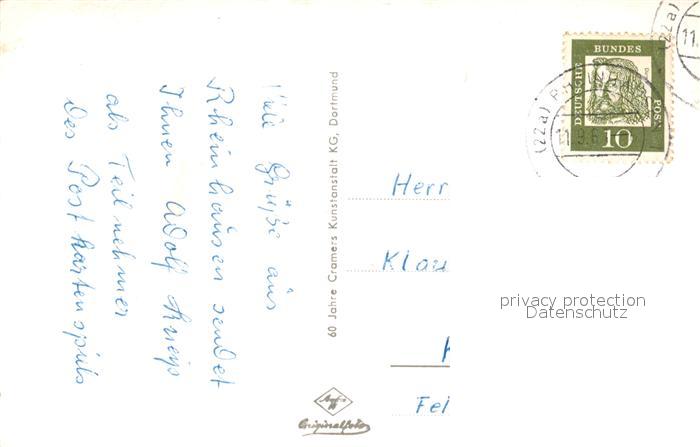 Viele Grüße aus
Rheinhausen sendet
Ihnen Adolf Kneip
als Teilnehmer
des Postkartenspiels
60 Jahre Cramers Kunstanstalt KG, Dortmund
Agfa
Originalfoto
DEUTSCHE
BUNDES
POST
10
(22a) RHEINH
11.9.6
(22a)
11.
Herr
Klau
Fel
privacy protection
Datenschutz